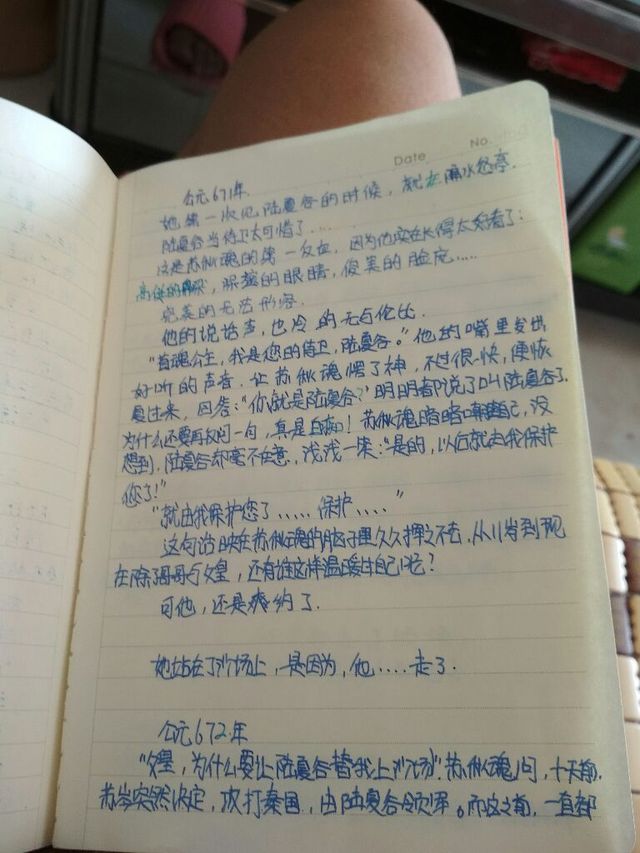 Date No.
公元671年.
她第一次见陆夏谷的时候，就在隔水悠亭.
陆夏谷当侍卫太可惜了.....
这是苏倾魂的第一反应，因为他实在长得太好看了：
高挺的，深蓝的眼睛，俊美的脸庞.....
完美的无法形容.
他的说话声，也冷的无与伦比.
魂公主，我是您的侍卫，陆夏谷。”他的嘴里发出
好听的声音，让苏倾魂愣了神，不过很快，便恢
复过来，回答：“你就是陆夏谷？”明明都说了叫陆夏谷了.
为什么还要再反问一句，真是白痴！苏倾魂暗暗嘲自己，没
想到，陆夏谷却毫不在意，浅浅一笑：“是的，以后就由我保护
您了！”
“就由我保护您了......保护....”
这句话映在苏倾魂的脑子里久久挥之不去，从11岁到现
在除了哥哥与父皇，还有谁这样温暖过自己呢？
可他，还是爽约了.
她站在了沙场上，是因为，他....走了.
公元672年
“父皇，为什么要让陆夏谷替我上沙场”.苏倾魂问，十天前.
苏岑突然决定，攻打秦国，由陆夏谷领军。而这之前，一直都